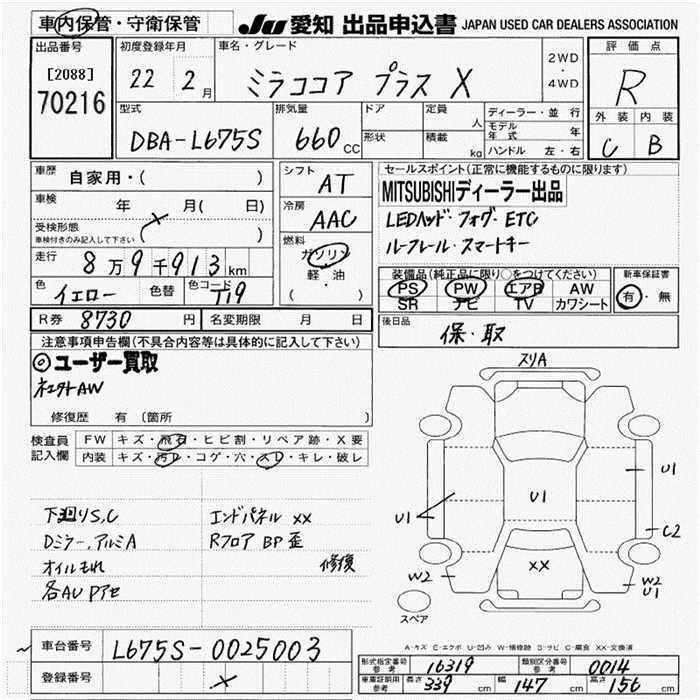 車内保管・守衛保管 JU 愛知 出品申込書 JAPAN USED CAR DEALERS ASSOCIATION
出品番号 初度登録年月 車名・グレード 2WD・4WD 評価点
[2088] 70216 22 2月 ミラココア プラス X R
型式 排気量 ドア 定員 人 ディーラー・並行 外装 内装
DBA-L675S 660cc 形状 積載 kg モデル年式 年 C B
ハンドル 左・右
車歴 自家用・( ) シフト AT セールスポイント(正常に機能するものに限ります)
車検 年 月( 日) 冷房 AAC MITSUBISHIディーラー出品
受検形態 車検付きのみ記入して下さい ( ) LEDヘッド・フォグ・ETC
燃料 ガソリン 軽・油 ( ) ルーフレール・スマートキー
走行 8万9千913km
色 イエロー 色替 色コード T19
装備品(純正品に限り○をつけてください) 新車保証書
PS PW エアB AW 有・無
SR ナビ TV カワシート
R券 8730円 名変期限 月 日 後日品 保・取
注意事項申告欄(不具合内容等は具体的に記入して下さい)
◎ユーザー買取
ネクストAW
修復歴 有 〔箇所
検査員記入欄 FW キズ・飛石・ヒビ割・リペア跡・X要
内装 キズ・汚レ・コゲ・穴・スレ・キレ・破レ
下廻りS,C エンドパネル XX
Dミラー,アルミA Rフロア BP歪
オイルもれ 修復
各AUPアセ
スリA
U1
U1
U1
C2
XX
W2
W2
U1
スペア
A-キズ E-エクボ U-凹み W-補修跡 S-サビ C-腐食 XX-交換済
車台番号 L675S-0025003
登録番号
形式指定番号 参考 16319 類別区分番号 参考 0014
車庫証明用 参考 長さ 339cm 幅 147cm 高さ 156cm